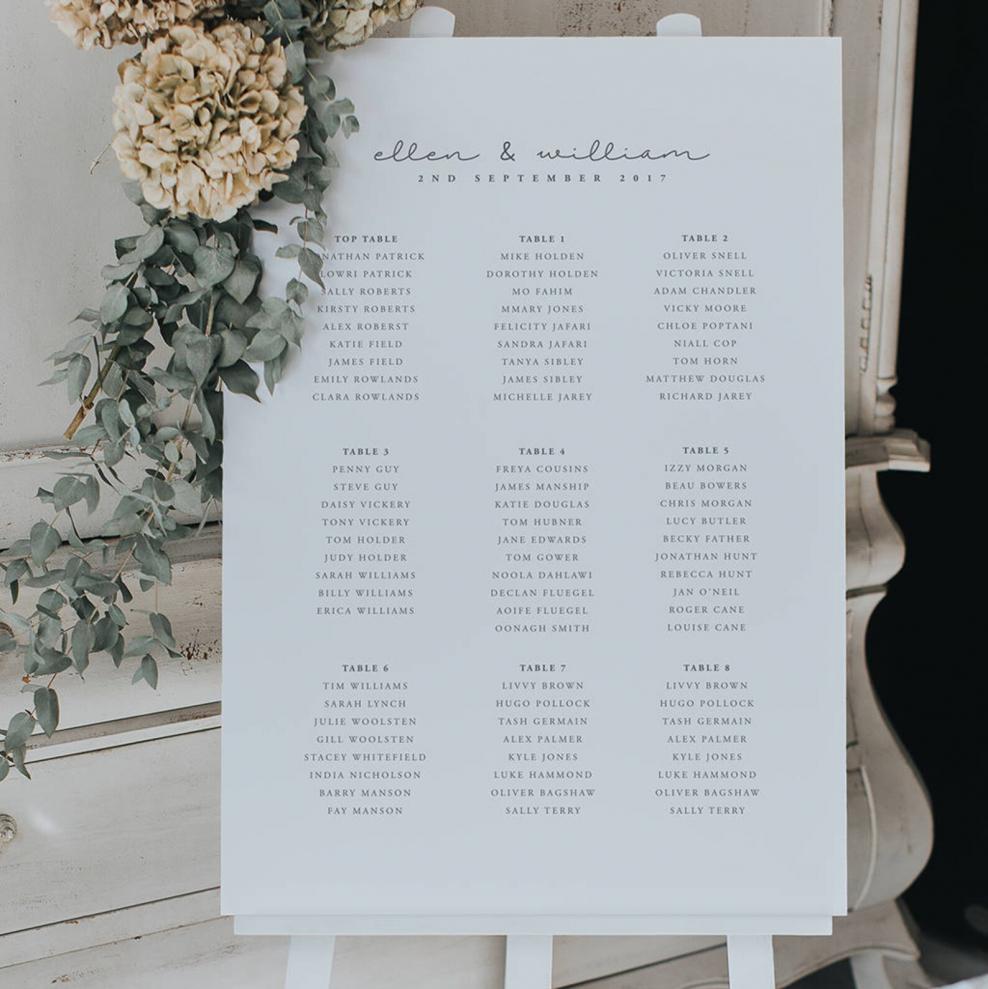 ellen & william
2ND SEPTEMBER 2017
TOP TABLE
NATHAN PATRICK
LOWRI PATRICK
SALLY ROBERTS
KIRSTY ROBERTS
ALEX ROBERST
KATIE FIELD
JAMES FIELD
EMILY ROWLANDS
CLARA ROWLANDS
TABLE 1
MIKE HOLDEN
DOROTHY HOLDEN
MO FAHIM
MMARY JONES
FELICITY JAFARI
SANDRA JAFARI
TANYA SIBLEY
JAMES SIBLEY
MICHELLE JAREY
TABLE 2
OLIVER SNELL
VICTORIA SNELL
ADAM CHANDLER
VICKY MOORE
CHLOE POPTANI
NIALL COP
TOM HORN
MATTHEW DOUGLAS
RICHARD JAREY
TABLE 3
PENNY GUY
STEVE GUY
DAISY VICKERY
TONY VICKERY
TOM HOLDER
JUDY HOLDER
SARAH WILLIAMS
BILLY WILLIAMS
ERICA WILLIAMS
TABLE 4
FREYA COUSINS
JAMES MANSHIP
KATIE DOUGLAS
TOM HUBNER
JANE EDWARDS
TOM GOWER
NOOLA DAHLAWI
DECLAN FLUEGEL
AOIFE FLUEGEL
OONAGH SMITH
TABLE 5
IZZY MORGAN
BEAU BOWERS
CHRIS MORGAN
LUCY BUTLER
BECKY FATHER
JONATHAN HUNT
REBECCA HUNT
JAN O'NEIL
ROGER CANE
LOUISE CANE
TABLE 6
TIM WILLIAMS
SARAH LYNCH
JULIE WOOLSTEN
GILL WOOLSTEN
STACEY WHITEFIELD
INDIA NICHOLSON
BARRY MANSON
FAY MANSON
TABLE 7
LIVVY BROWN
HUGO POLLOCK
TASH GERMAIN
ALEX PALMER
KYLE JONES
LUKE HAMMOND
OLIVER BAGSHAW
SALLY TERRY
TABLE 8
LIVVY BROWN
HUGO POLLOCK
TASH GERMAIN
ALEX PALMER
KYLE JONES
LUKE HAMMOND
OLIVER BAGSHAW
SALLY TERRY